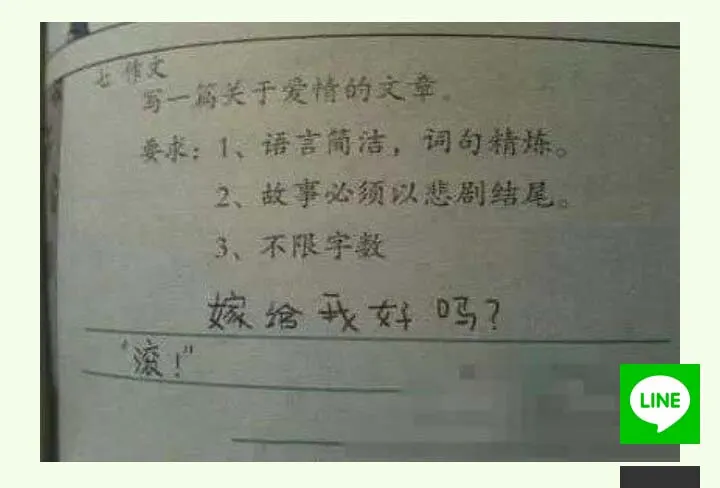 七 作文
写一篇关于爱情的文章。
要求：1、语言简洁，词句精炼。
2、故事必须以悲剧结尾。
3、不限字数
嫁给我好吗？
“滚！”
LINE